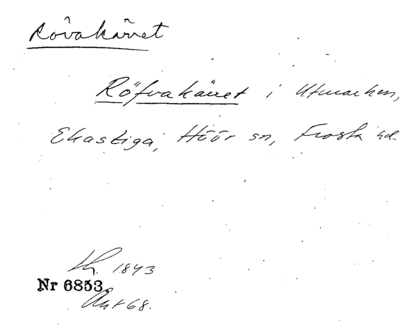 Rövakärret
Röfvakärret i Utmarken,
Ekastiga, Höör sn, Frosta hd.
Lh. 1843
Nr 6853
Akt 68.